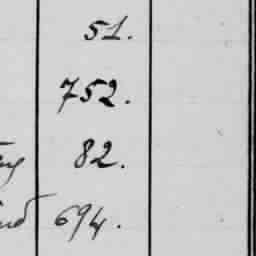 51.
752.
82.
694.